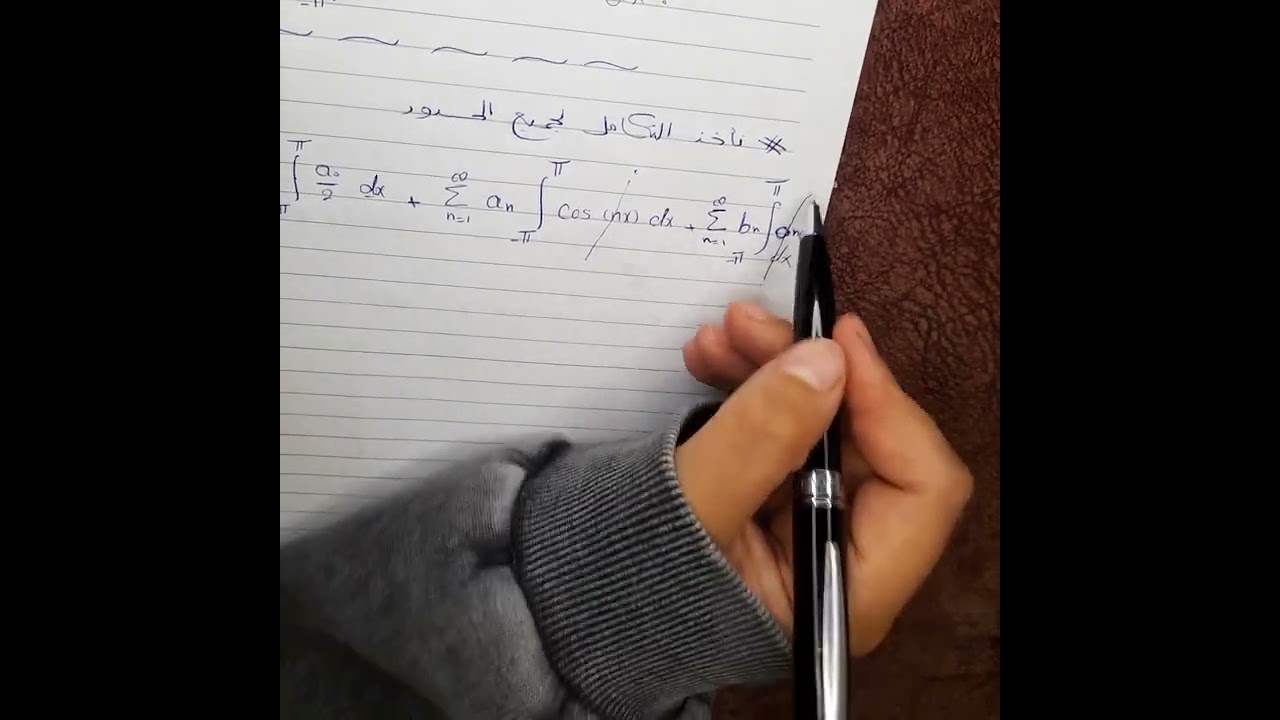 * نأخذ التكامل لجميع الحدود
∫ π a₀/2 dx + ∞ Σ n=1 aₙ ∫ π -π cos (nx) dx + ∞ Σ n=1 bₙ ∫ π -π dx